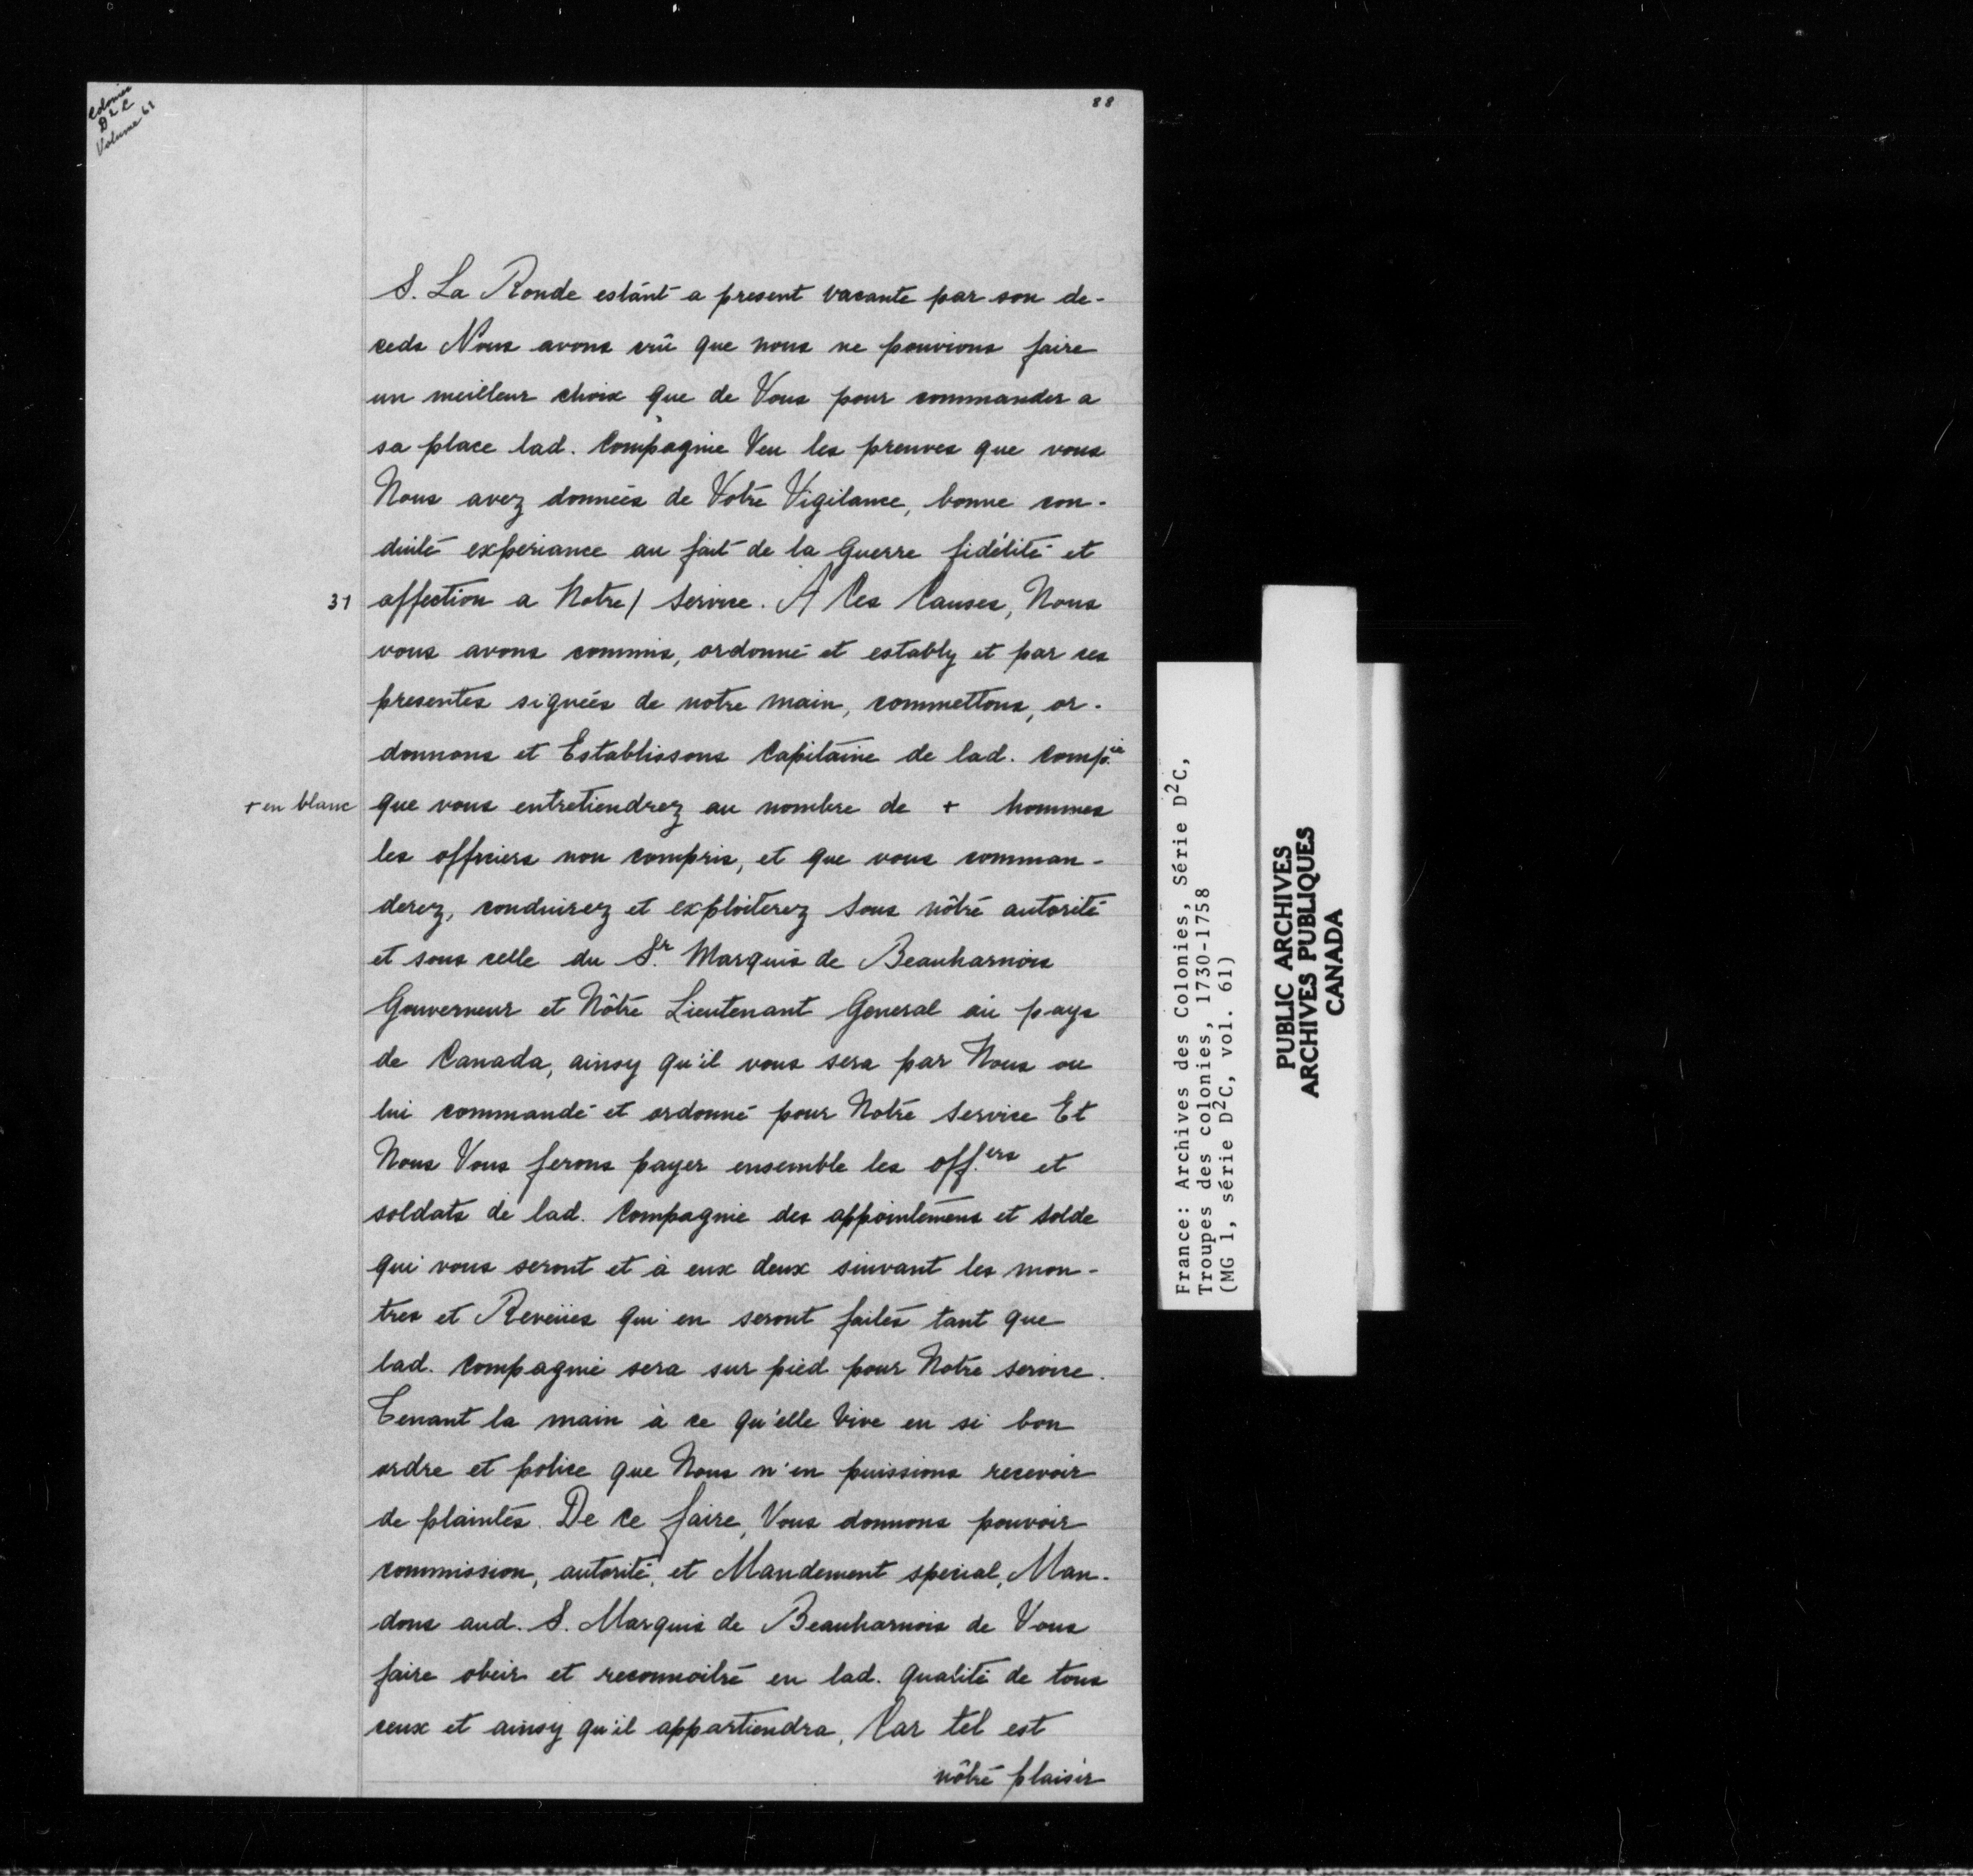 Colonies
D2C
Volume 61
88
S. La Ronde estant a present vacante par son de-
ceds Nous avons crû que nous ne pouvions faire
un meilleur choix que de Vous pour commander a
sa place lad. Compagnie Veu les preuves que vous
Nous avez données de Votre Vigilance, bonne con-
duite experiance au fait de la Guerre fidélité et
31 affection a Notre/ Service. A Ces Causes, Nous
vous avons commis, ordonné et establly et par ces
presentes signées de notre main, commettons, or-
donnons et Establissons Capitaine de lad. Comp.ie
+ en blanc que vous entretiendrez au nombre de + hommes
les officiers non compris, et que vous comman-
derez, conduirez et exploiterez sous nôtre autorité
et sous celle du Sr. Marquis de Beauharnois
Gouverneur et Nôtre Lieutenant General au pays
de Canada, ainsy qu'il vous sera par Nous ou
lui commandé et ordonné pour Notre Service Et
Nous Vous ferons payer ensemble les off.ers et
soldats de lad. Compagnie des appointemens et solde
qui vous seront et à eux deux suivant les mon-
tres et Reveües qui en seront faites tant que
lad. Compagnie sera sur pied pour Notre service.
Tenant la main à ce qu'elle Vive en si bon
ordre et police que Nous n'en puissions recevoir
de plaintes. De ce faire, Vous donnons pouvoir
commission, autorité, et Mandement special, Man-
dons aud. S. Marquis de Beauharnois de Vous
faire obeir et reconnoitre en lad. qualité de tous
ceux et ainsy qu'il appartiendra, Car tel est
nôtre plaisir
France: Archives des Colonies, Série D2C,
Troupes des colonies, 1730-1758
(MG 1, série D2C, vol. 61)
PUBLIC ARCHIVES
ARCHIVES PUBLIQUES
CANADA